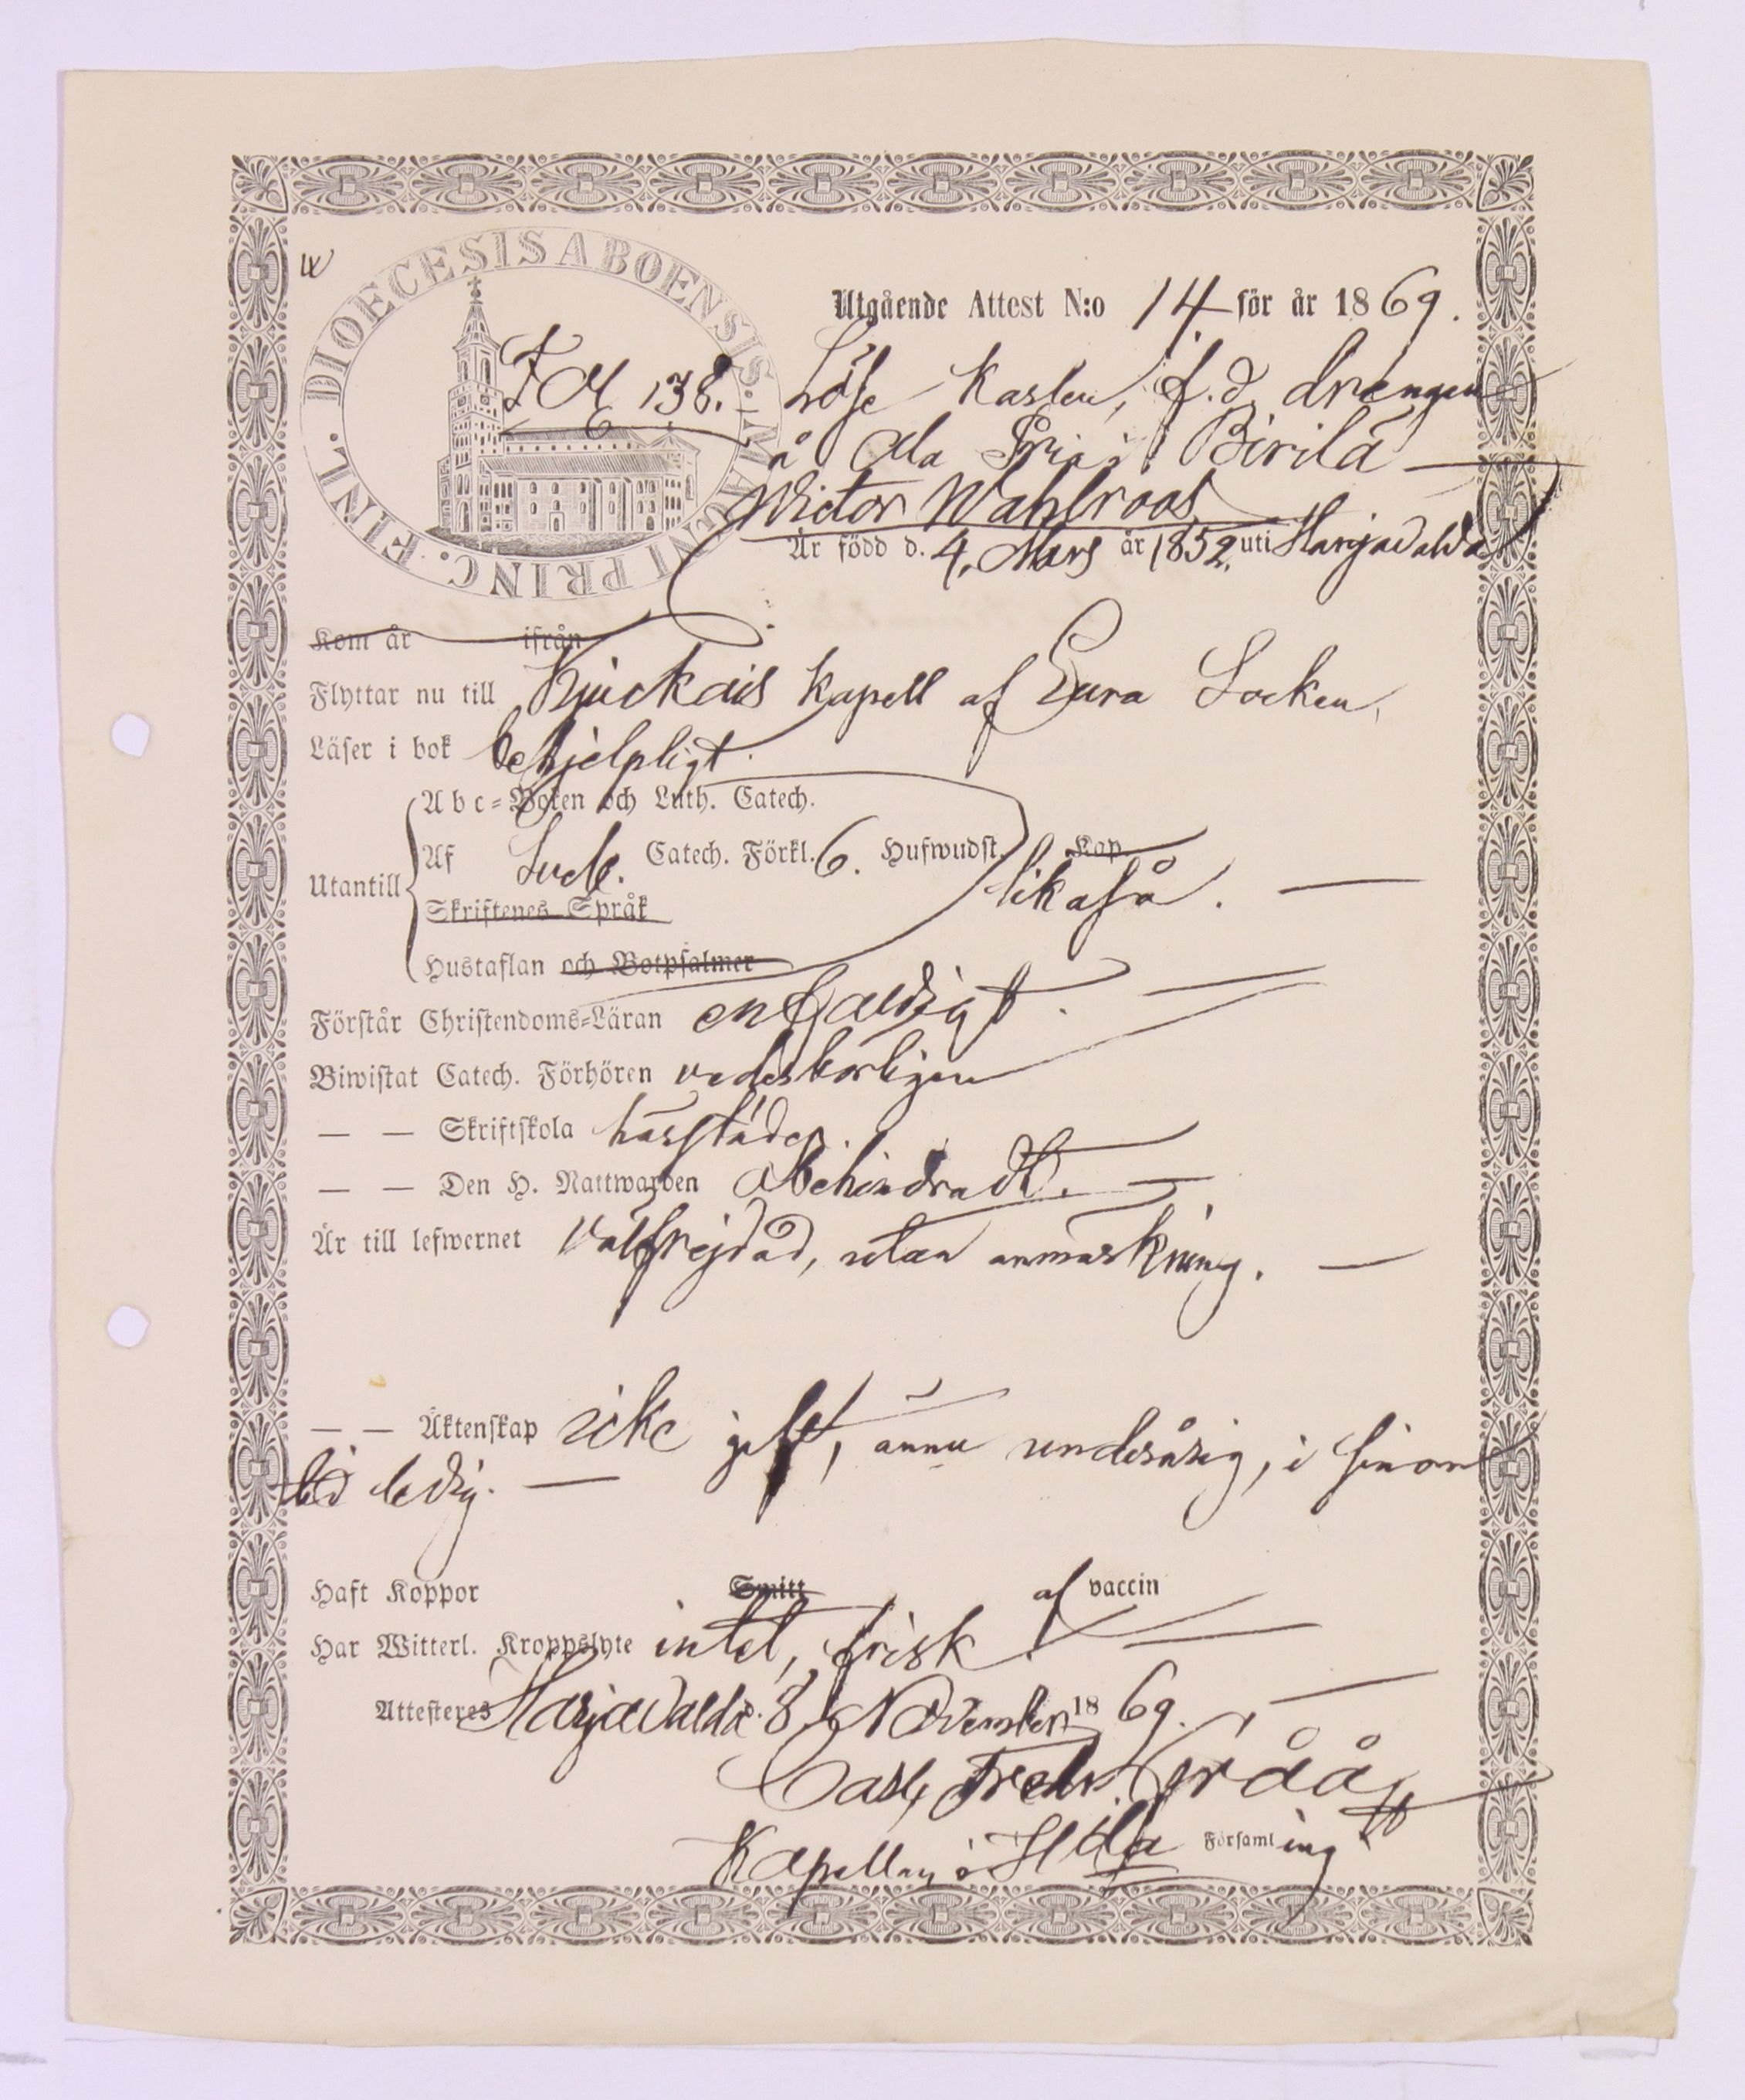 DIOECESIS ABOENSIS. MAGNI PRINC. FINL.
Utgående Attest N:o 14 för år 1869.
138. Löse Karlen, f.d. drängen
å Ala Birilä
Wictor Wahlroos
Är född d. 4. Mars år 1852. uti Harjavalda
Kom år ifrån
Flyttar nu till Kjuckais kapell af Eura Socken,
Läser i bok behjelpligt.
Abc-Boken och Luth. Catech.
Utantill Af Catech. Förkl. 6. Hufwudst. Kap. likaså.
Skriftenes Språk
Hustaflan och Botpsalmer
Förstår Christendoms-Läran enfaldigt.
Biwistat Catech. Förhören vederbörligen
— — Skriftskola härstädes.
— — Den H. Nattwarden obehindradt.
Är till lefwernet välfrejdad, utan anmärkning.
— — Äktenskap icke gift, ännu underårig, i sinom
tid ledig.
Haft Koppor Smitt af vaccin
Har Witterl. Kroppslyte intet, frisk
Attesteres Harjavalda 8 November 1869.
Carl Fredr. Gråå
Kapellan i Församling